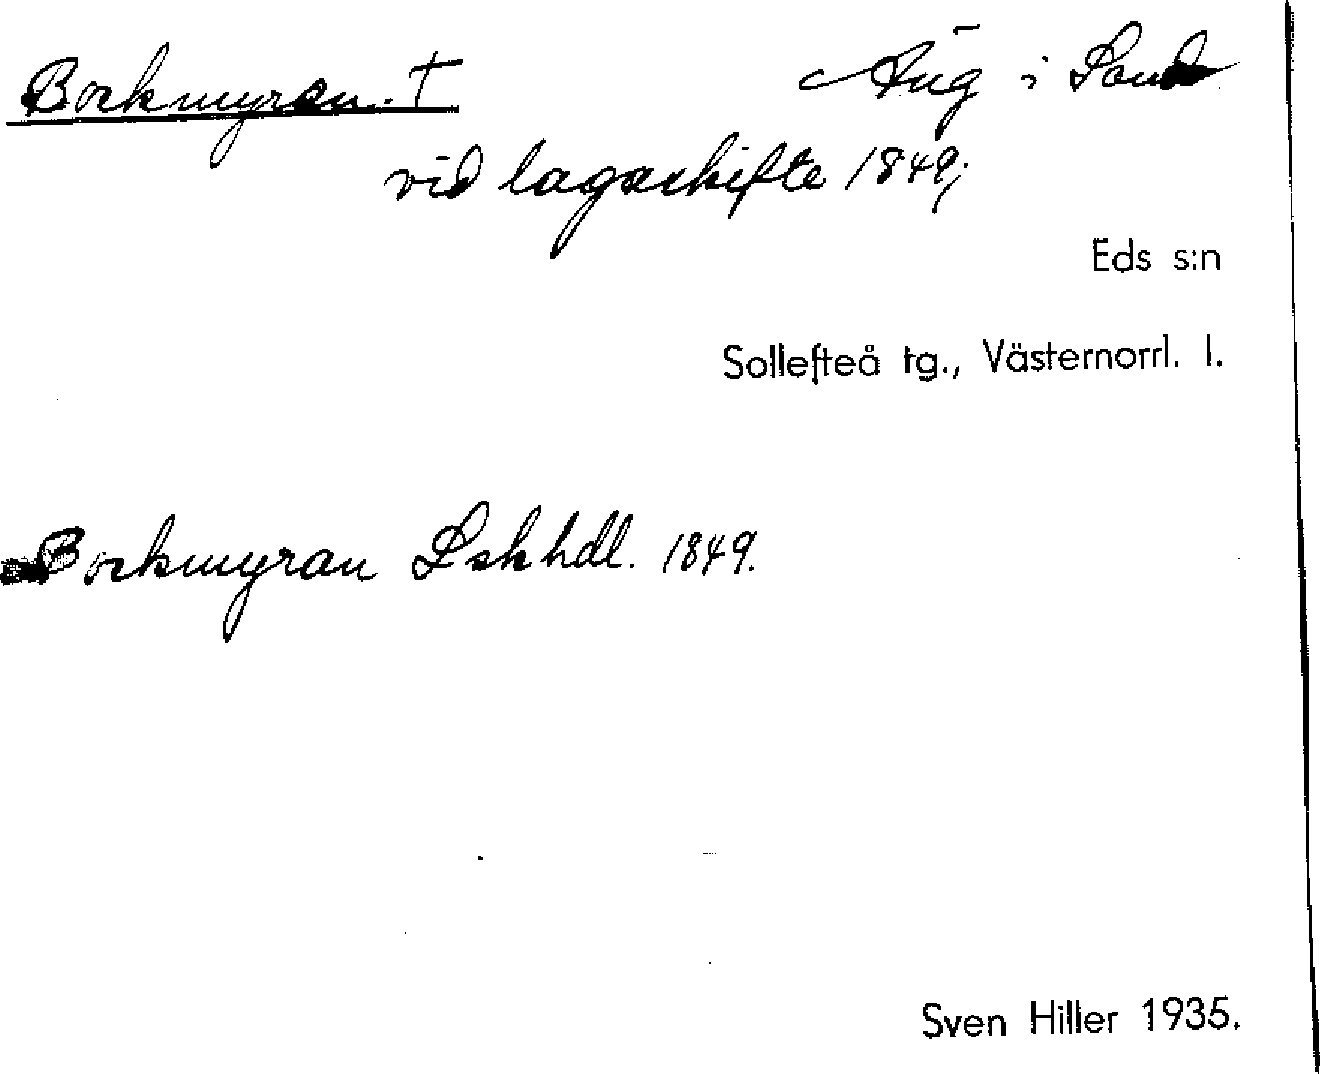 Bockmyran. † Äng i Sand
vid lagaskifte 1849;
Eds s:n
Sollefteå tg., Västernorrl. l.
Bockmyran Lskhdl. 1849.
Sven Hiller 1935.